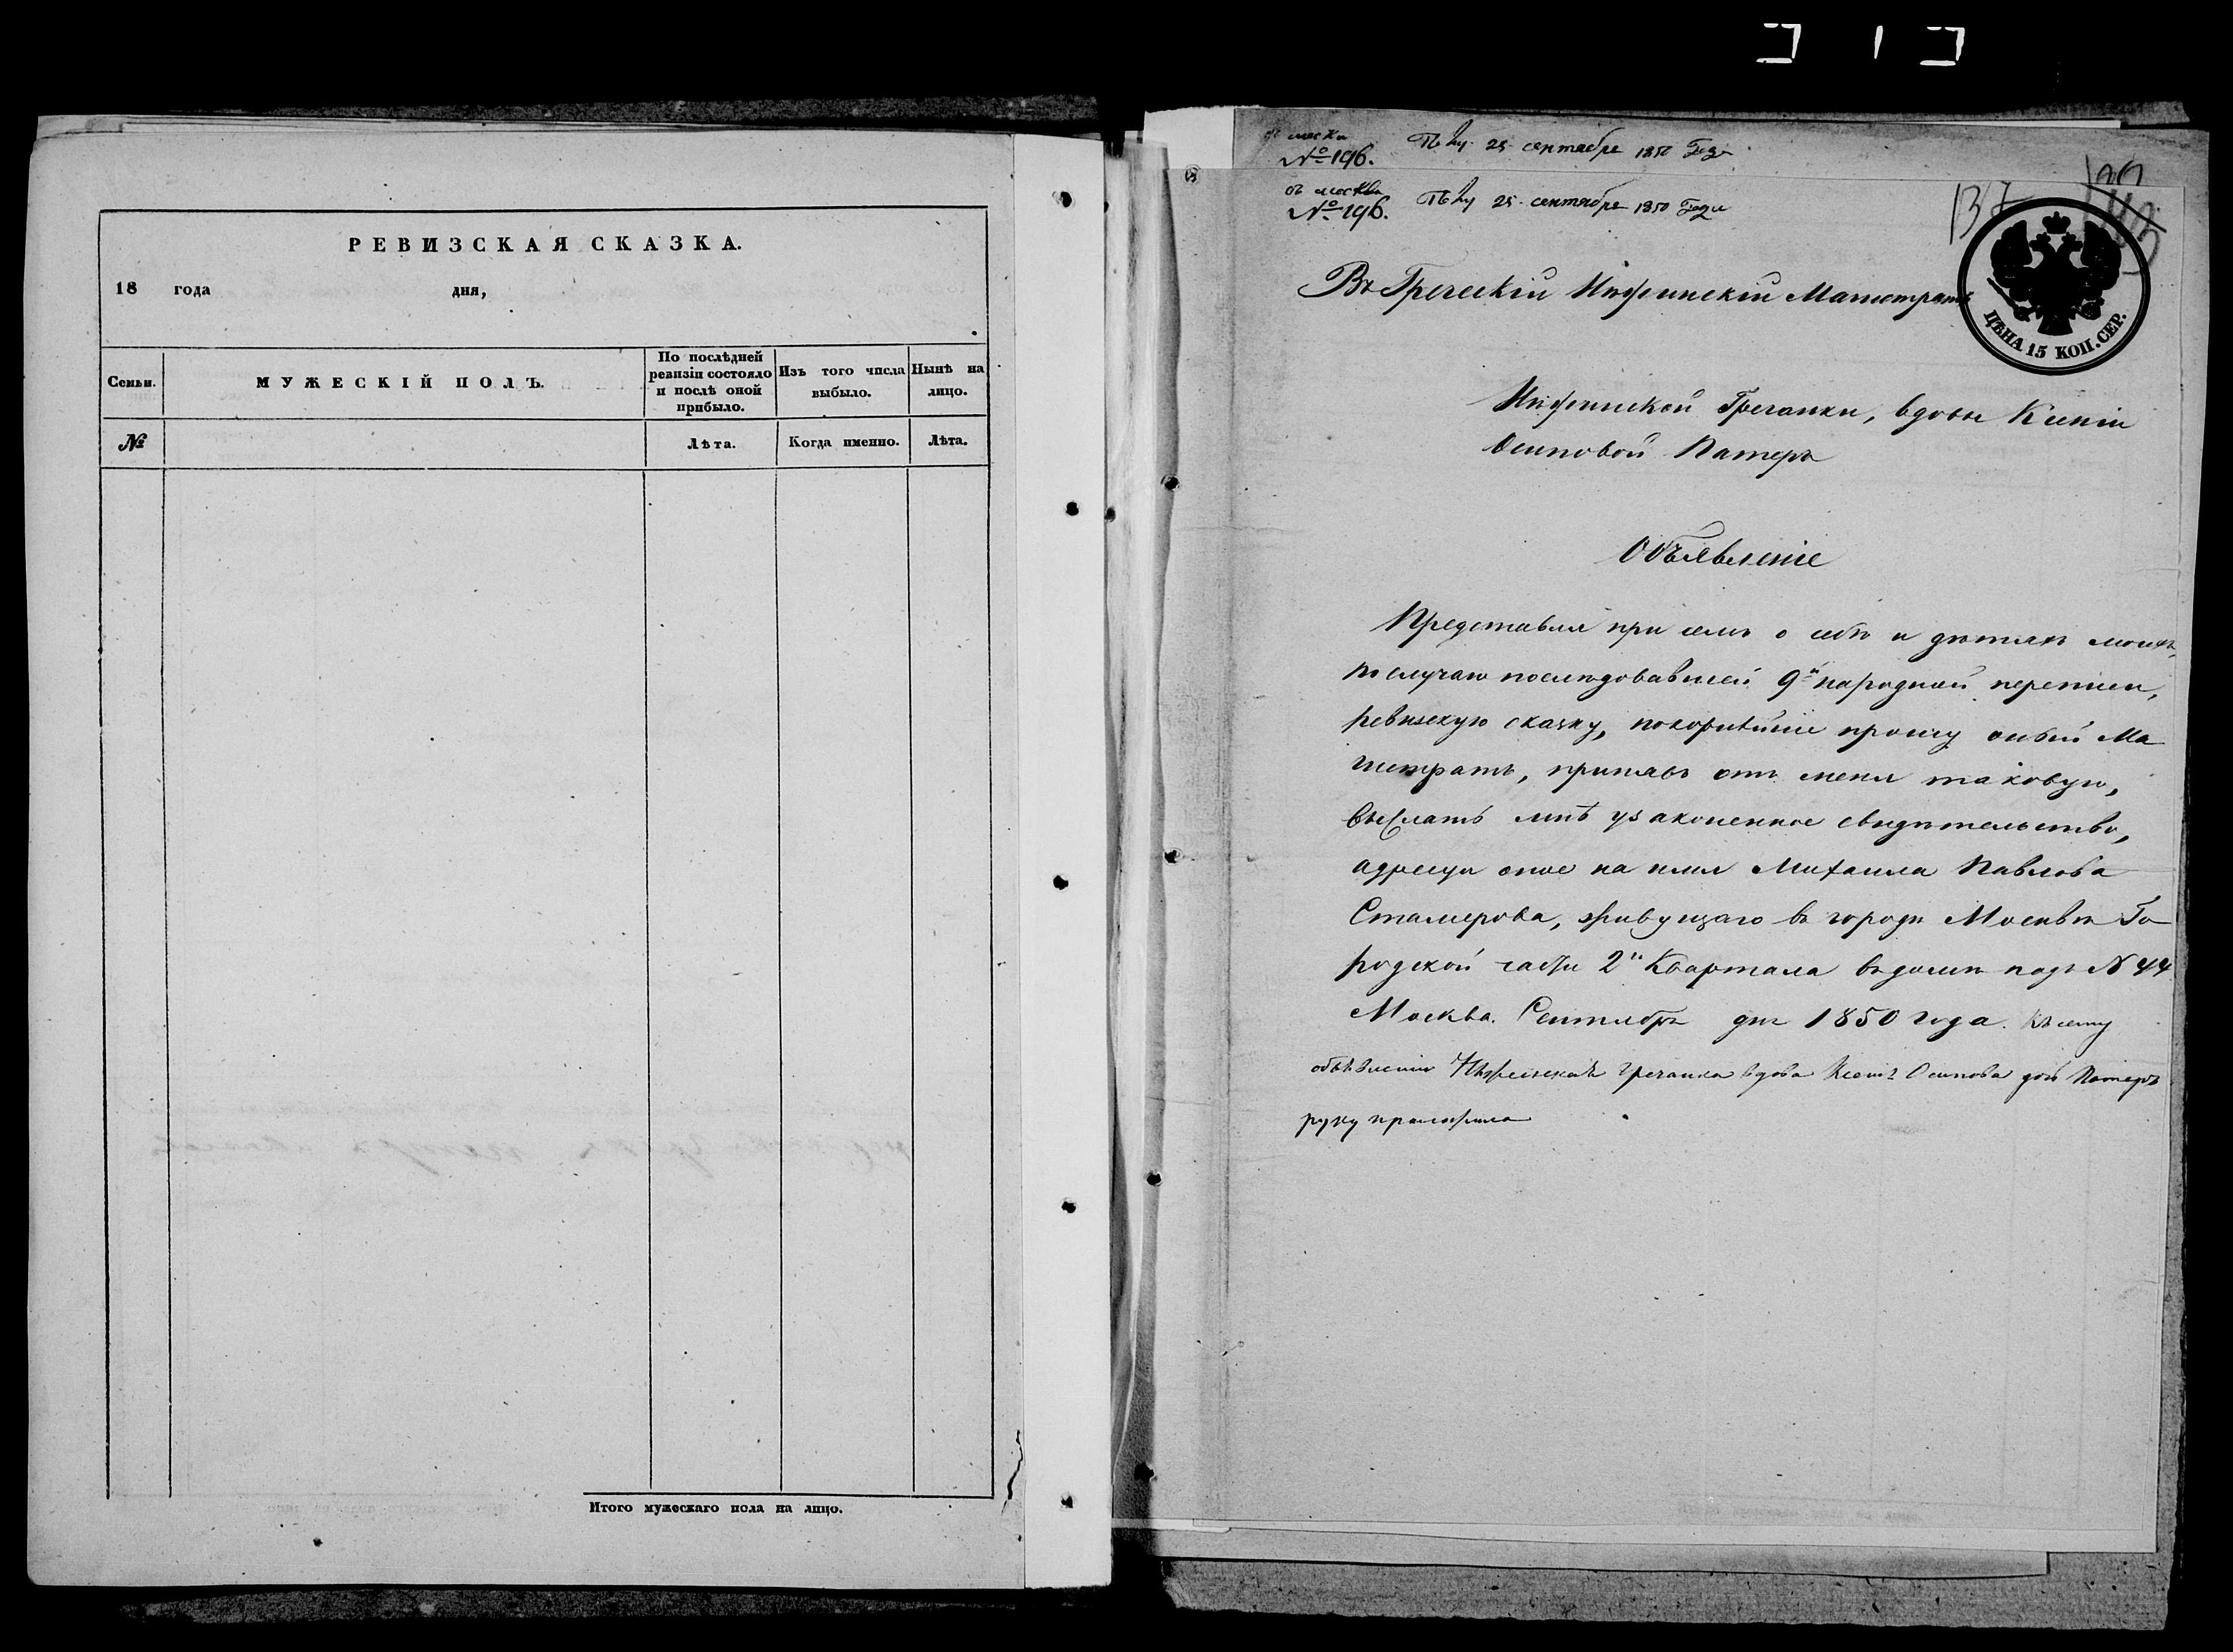 РЕВИЗСКАЯ СКАЗКА.
18 года дня,
Семьи.
МУЖЕСКІЙ ПОЛЪ.
По послѣдней
ревизіи состояло
и послѣ оной
прибыло.
Изъ того числа
выбыло.
Нынѣ на
лицо.
№
Лѣта.
Когда именно.
Лѣта.
Итого мужескаго пола на лицо.
№ 196. 25 сентября 1850
съ Москвы
№ 196. 25 сентября 1850 Года
137
ЦѢНА 15 КОП. СЕР.
Въ Греческій Нѣжинскій Магистратъ
Нѣжинской Гречанки, вдовы Ксеніи
Осиповой Патеръ
Объявленіе
Представляя при семъ о себѣ и дѣтяхъ моихъ,
по случаю послѣдовавшей 9й народной переписи,
ревизскую сказку, покорнѣйше прошу оный Ма
гистратъ, принявъ отъ меня таковую,
выслать мнѣ узаконенное свидѣтельство,
адресуя оное на имя Михаила Павлова
Сталерова, живущаго въ городѣ Москвѣ Го
родской части 2й Квартала въ домѣ подъ № 44
Москва. Сентября дня 1850 года. Къ сему
объявленію Нѣжинская гречанка вдова Осипова дочь Патеръ
руку приложила